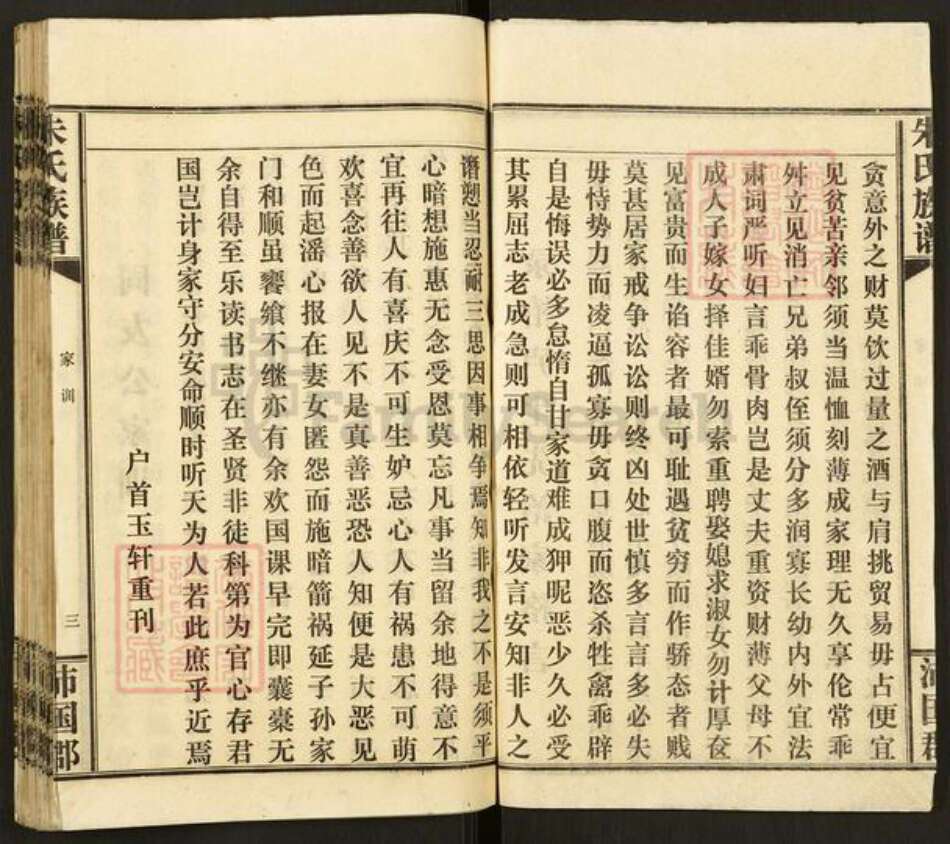 朱氏族谱
贪意外之财莫饮过量之酒与肩挑贸易毋占便宜
见贫苦亲邻须当温恤刻薄成家理无久享伦常乖
舛立见消亡兄弟叔侄须分多润寡长幼内外宜法
肃词严听妇言乖骨肉岂是丈夫重资财薄父母不
成人子嫁女择佳婿勿索重聘娶媳求淑女勿计厚奁
见富贵而生谄容者最可耻遇贫穷而作骄态者贱
莫甚居家戒争讼讼则终凶处世慎多言言多必失
毋恃势力而凌逼孤寡毋贪口腹而恣杀牲禽乖辟
自是悔误必多怠惰自甘家道难成狎昵恶少久必受
其累屈志老成急则可相依轻听发言安知非人之
谮愬当忍耐三思因事相争焉知非我之不是须平
心暗想施惠无念受恩莫忘凡事当留余地得意不
宜再往人有喜庆不可生妒忌心人有祸患不可萌
欢喜念善欲人见不是真善恶恐人知便是大恶见
色而起潘心报在妻女匿怨而施暗箭祸延子孙家
门和顺虽饔飧不继亦有余欢国课早完即囊橐无
余自得至乐读书志在圣贤非徒科第为官心存君
国岂计身家守分安命顺时听天为人若此庶乎近焉
户首玉轩重刊
朱氏族谱
家训
三
沛国郡